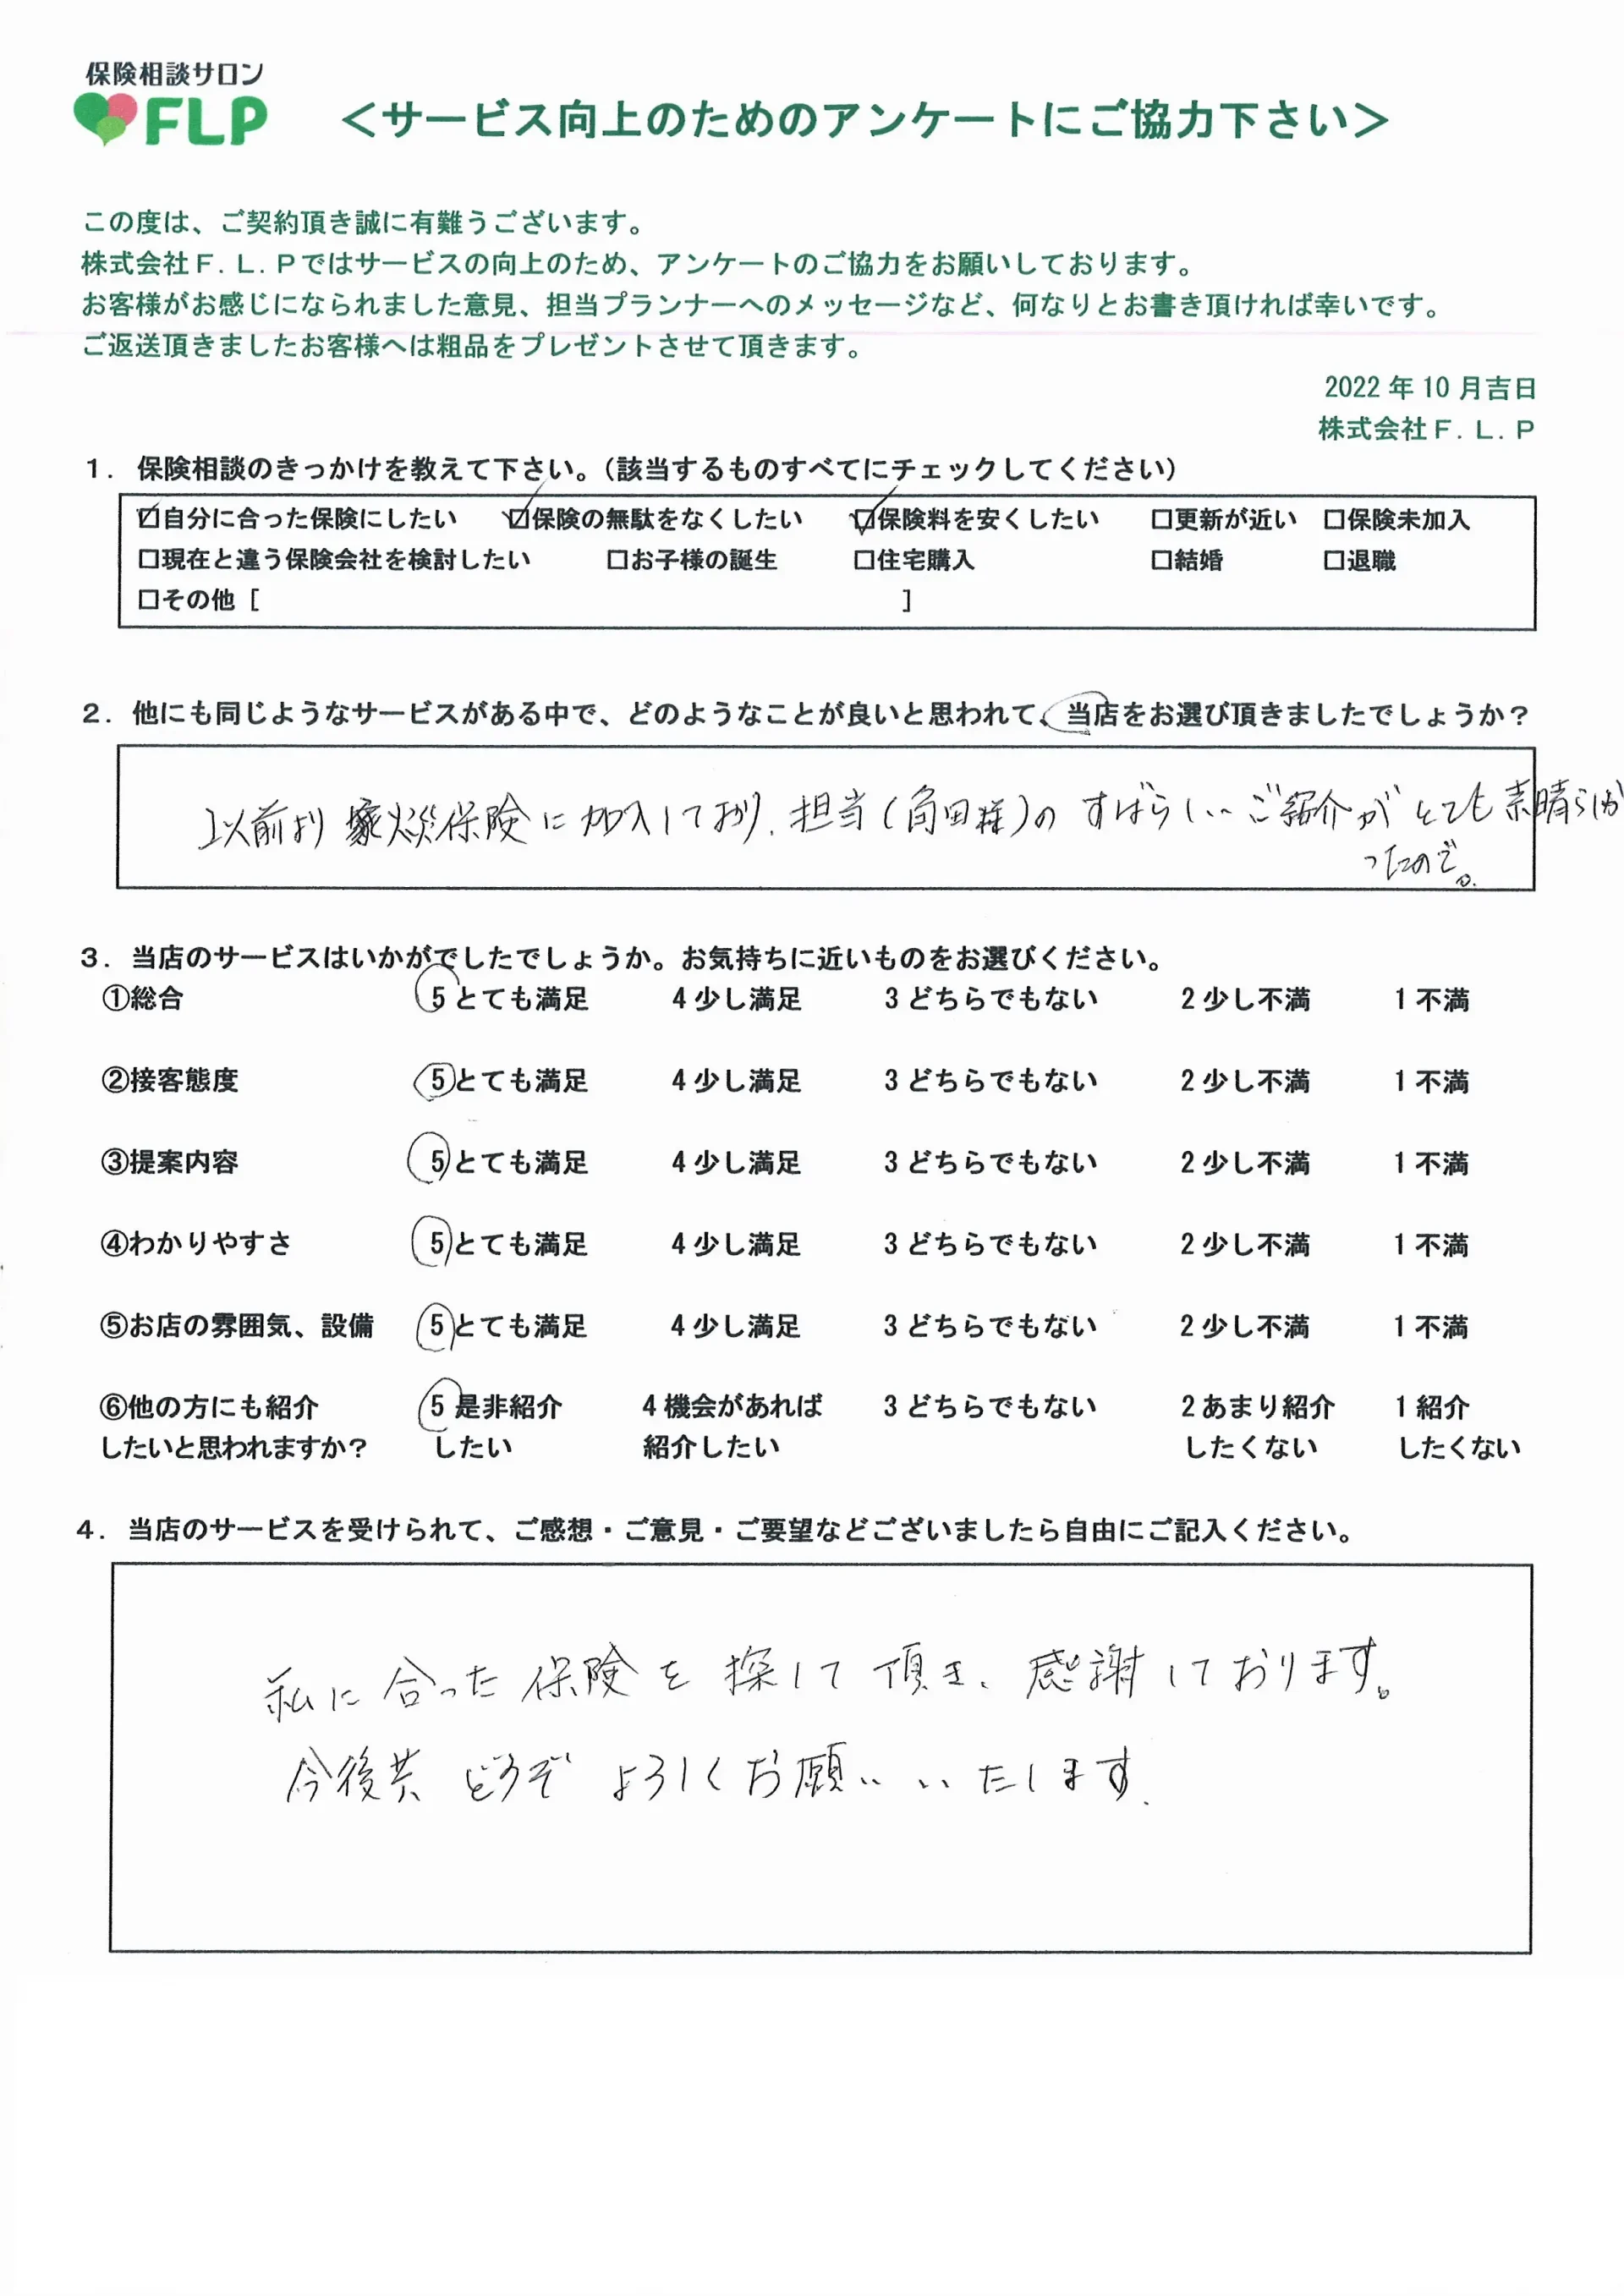 保険相談サロン
FLP
＜サービス向上のためのアンケートにご協力下さい＞
この度は、ご契約頂き誠に有難うございます。
株式会社Ｆ．Ｌ．Ｐではサービスの向上のため、アンケートのご協力をお願いしております。
お客様がお感じになられました意見、担当プランナーへのメッセージなど、何なりとお書き頂ければ幸いです。
ご返送頂きましたお客様へは粗品をプレゼントさせて頂きます。
2022 年 10 月吉日
株式会社Ｆ．Ｌ．Ｐ
１．保険相談のきっかけを教えて下さい。（該当するものすべてにチェックしてください）
☑自分に合った保険にしたい ☑保険の無駄をなくしたい ☑保険料を安くしたい □更新が近い □保険未加入
□現在と違う保険会社を検討したい □お子様の誕生 □住宅購入 □結婚 □退職
□その他［ ］
２．他にも同じようなサービスがある中で、どのようなことが良いと思われて、当店をお選び頂きましたでしょうか？
以前より 火災保険に加入しており、担当（角田様）の すばらしい ご紹介が とても 素晴らしか
ったので。
３．当店のサービスはいかがでしたでしょうか。お気持ちに近いものをお選びください。
①総合 5 とても満足 4 少し満足 3 どちらでもない 2 少し不満 1 不満
②接客態度 5 とても満足 4 少し満足 3 どちらでもない 2 少し不満 1 不満
③提案内容 5 とても満足 4 少し満足 3 どちらでもない 2 少し不満 1 不満
④わかりやすさ 5 とても満足 4 少し満足 3 どちらでもない 2 少し不満 1 不満
⑤お店の雰囲気、設備 5 とても満足 4 少し満足 3 どちらでもない 2 少し不満 1 不満
⑥他の方にも紹介 5 是非紹介 4 機会があれば 3 どちらでもない 2 あまり紹介 1 紹介
したいと思われますか？ したい 紹介したい したくない したくない
４．当店のサービスを受けられて、ご感想・ご意見・ご要望などございましたら自由にご記入ください。
私に 合った 保険 を 探して 頂き、感謝 しております。
今後共 どうぞ よろしく お願い いたします.